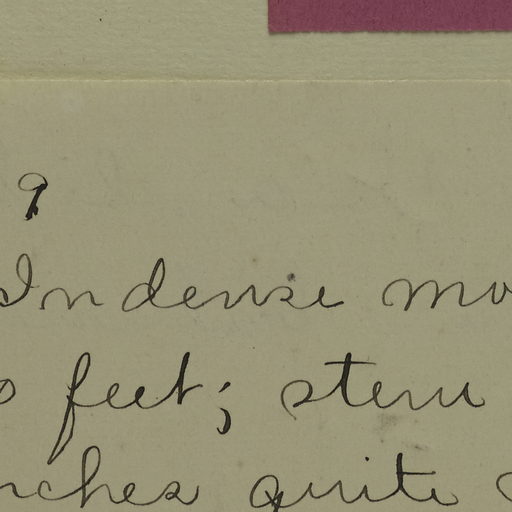 9
In dense mo
o feet; stem
nches quite